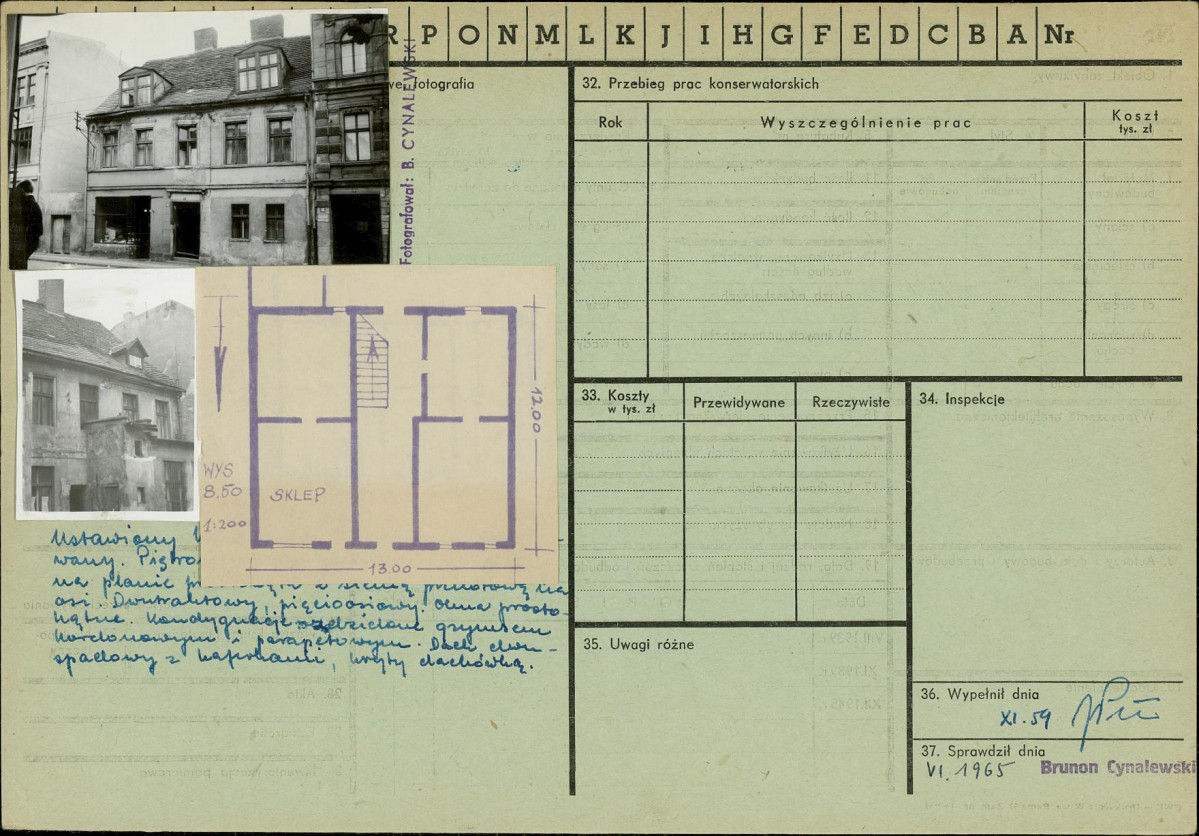 R P O N M L K J I H G F E D C B A Nr
fotografia
Fotografował: B. CYNALEWSKI
32. Przebieg prac konserwatorskich
Rok
Wyszczególnienie prac
Koszt
tys. zł
12.00
WYS
8.50
SKLEP
1:200
13.00
Ustawiony
wany. Piętro
na planie z sienią przelotową na
osi. Dwutraktowy, pięcioosiowy. Okna prosto-
kątne. Kondygnacje oddzielone gzymsem
kordonowym i parapetowym. Dach dwu-
spadowy z kafrkami, kryty dachówką.
33. Koszty
w tys. zł
Przewidywane
Rzeczywiste
34. Inspekcje
35. Uwagi różne
36. Wypełnił dnia
XI.59
37. Sprawdził dnia
VI. 1965
Brunon Cynalewski